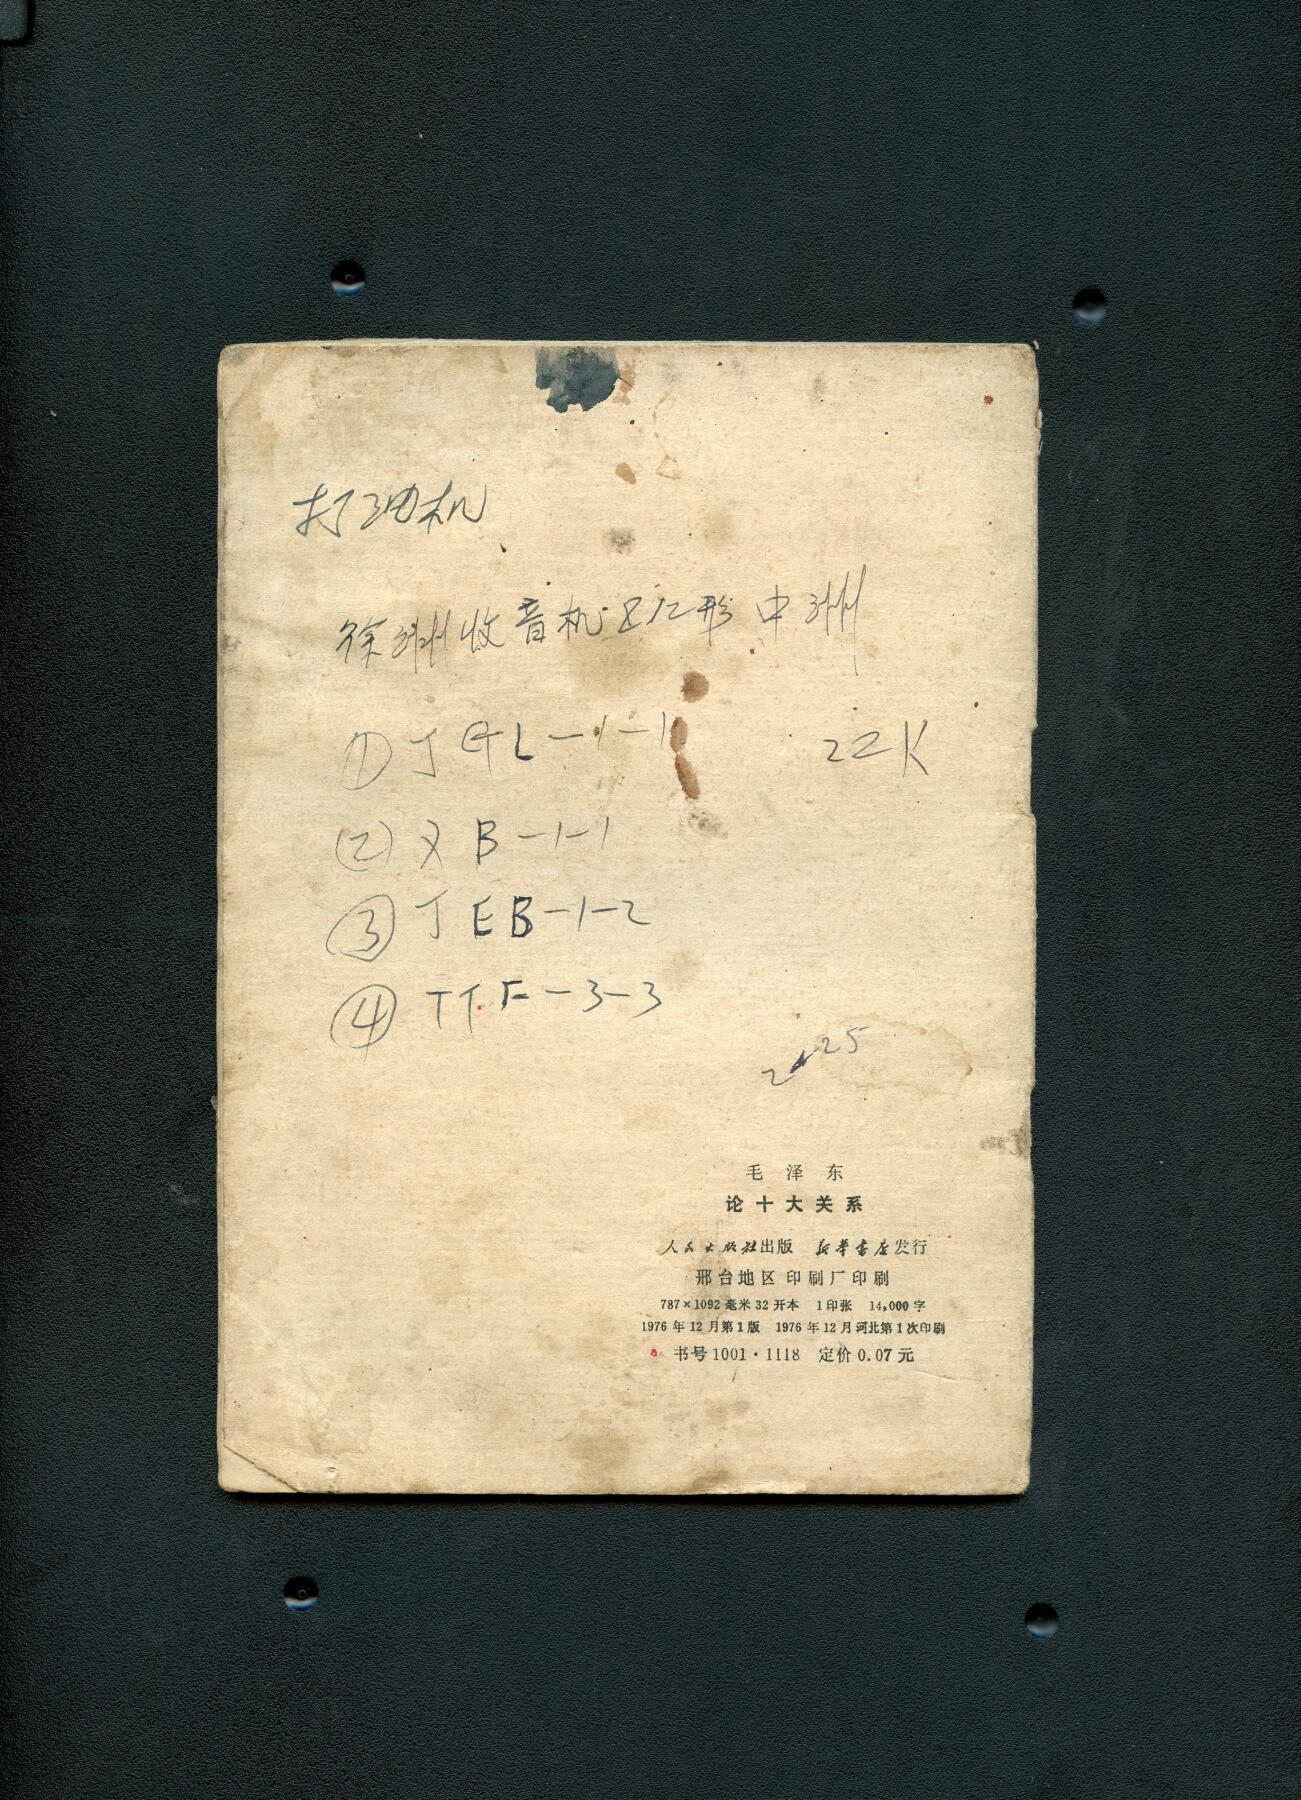 打油机
徐州收音机 形中州
① J L-1-1 22K
② B-1-1
③ J EB-1-2
④ TTF-3-3
25
毛泽东
论十大关系
人民出版社出版 新华书店发行
邢台地区印刷厂印刷
787×1092毫米32开本 1印张 14,000字
1976年12月第1版 1976年12月河北第1次印刷
书号1001·1118 定价0.07元